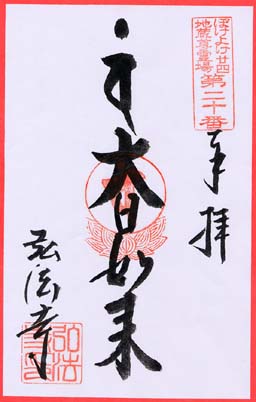 ぼけよけ廿四
地蔵尊霊場
第二十番
奉拝
大日如来
弘法寺
弘法